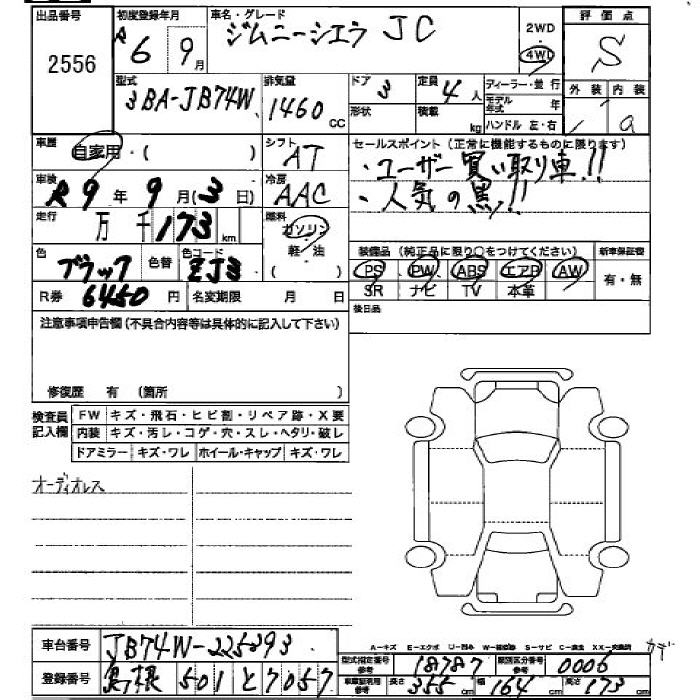 出品番号 初度登録年月 車名・グレード 評価点
2556 R 6 9月 ジムニーシエラ JC 2WD 4WD S
型式 排気量 ドア 定員 ディーラー・並行 外装 内装
3BA-JB74W 1460CC 3 4人 モデル年式 年 a
形状 積載 kg ハンドル 左・右
車歴 自家用・( ) シフト AT セールスポイント(正常に機能するものに限ります)
・ユーザー買い取り車!!
車検 R9年9月(3日) 冷房 AAC ・人気の黒!!
走行 万千173km 燃料 ガソリン 軽・油
色 ブラック 色替 色コード ZJ3 装備品(純正品に限り○をつけてください) 新車保証書
PS PW ABS エアB AW 有・無
SR ナビ TV 本革
R券 6450円 名変期限 月 日 後日品
注意事項申告欄(不具合内容等は具体的に記入して下さい)
修復歴 有 (箇所 )
検査員記入欄 FW キズ・飛石・ヒビ割・リペア跡・X要
内装 キズ・汚レ・コゲ・穴・スレ・ヘタリ・破レ
ドアミラー キズ・ワレ ホイール・キャップ キズ・ワレ
オーディオレス
車台番号 JB74W-225293
A-キズ E-エクボ U-凹み S-サビ C-腐食 XX-交換済
型式指定番号 参考 18787 類別区分番号 参考 0006
登録番号 島根 501 と 7057 参考 長さ 355cm 幅 164cm 高さ 173cm